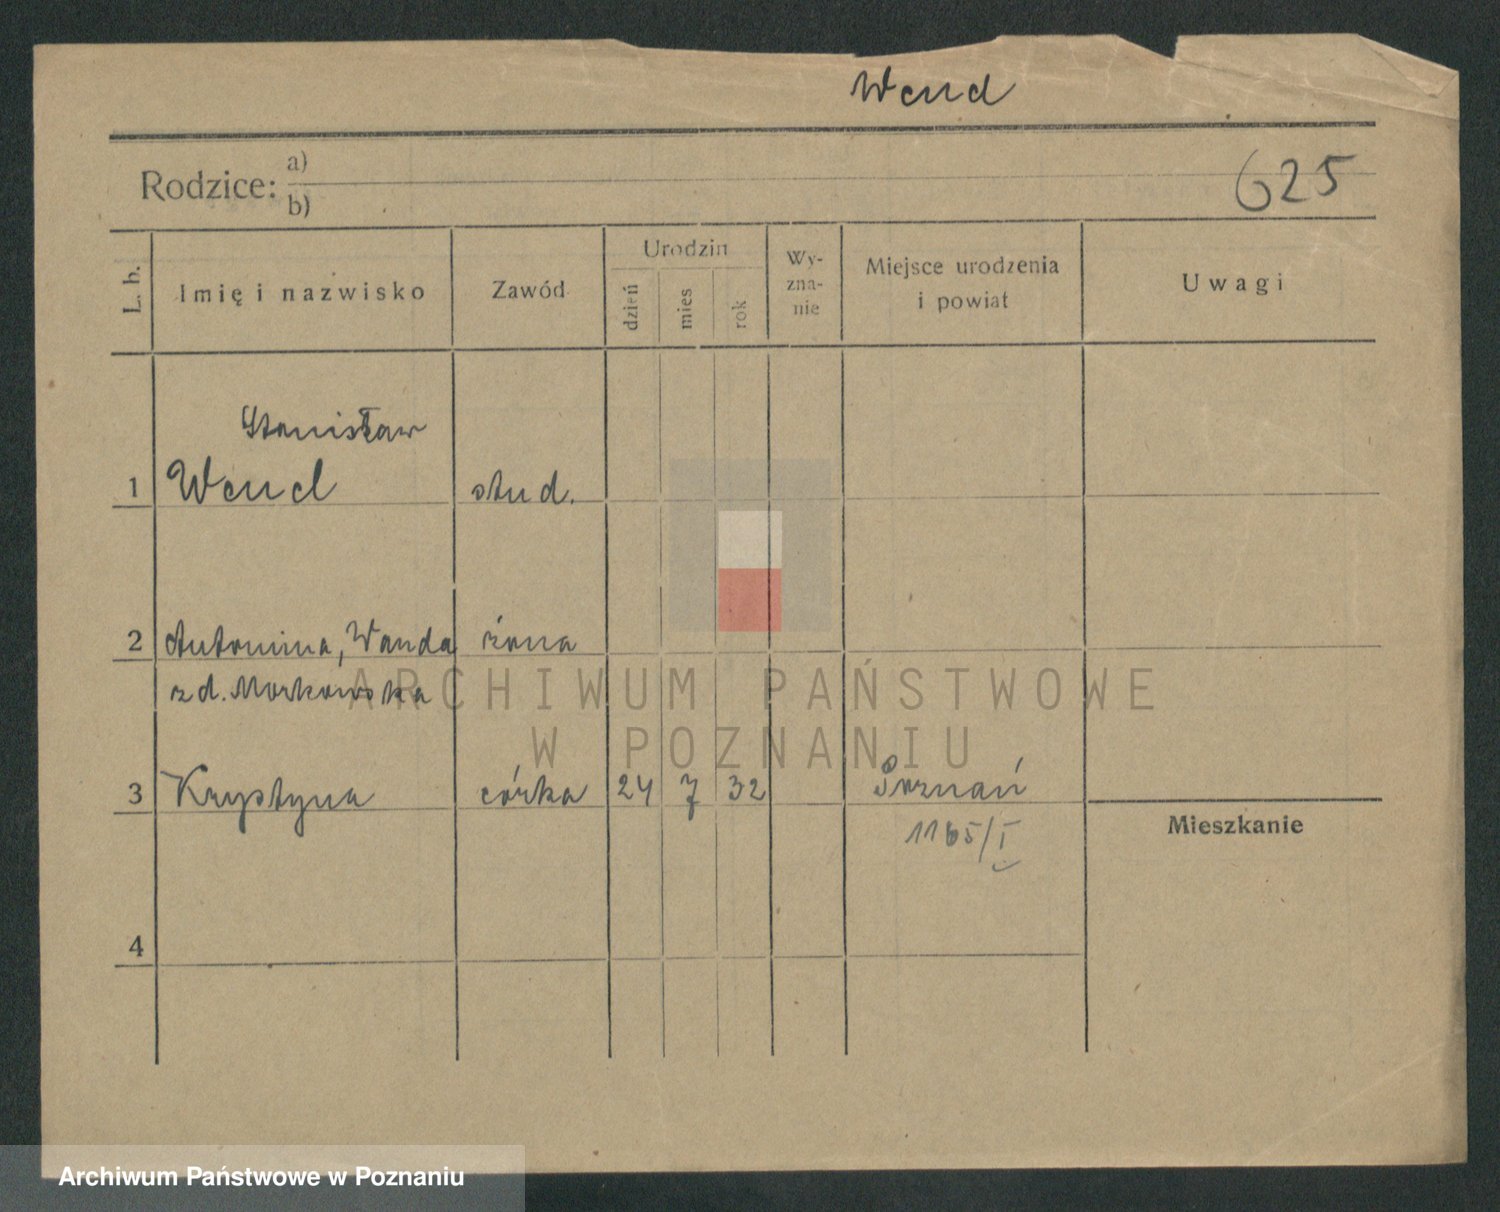 Wend
Rodzice: a)
b)
625
L. b.
Imię i nazwisko
Zawód
Urodzin
dzień
mies
rok
Wy-
zna-
nie
Miejsce urodzenia
i powiat
Uwagi
Stanisław
1 Wend stud.
2 Antonina, Wanda żona
z d. Morkowska
3 Krystyna córka 24 7 32 Poznań
1165/I
Mieszkanie
4
ARCHIWUM PAŃSTWOWE
W POZNANIU
Archiwum Państwowe w Poznaniu